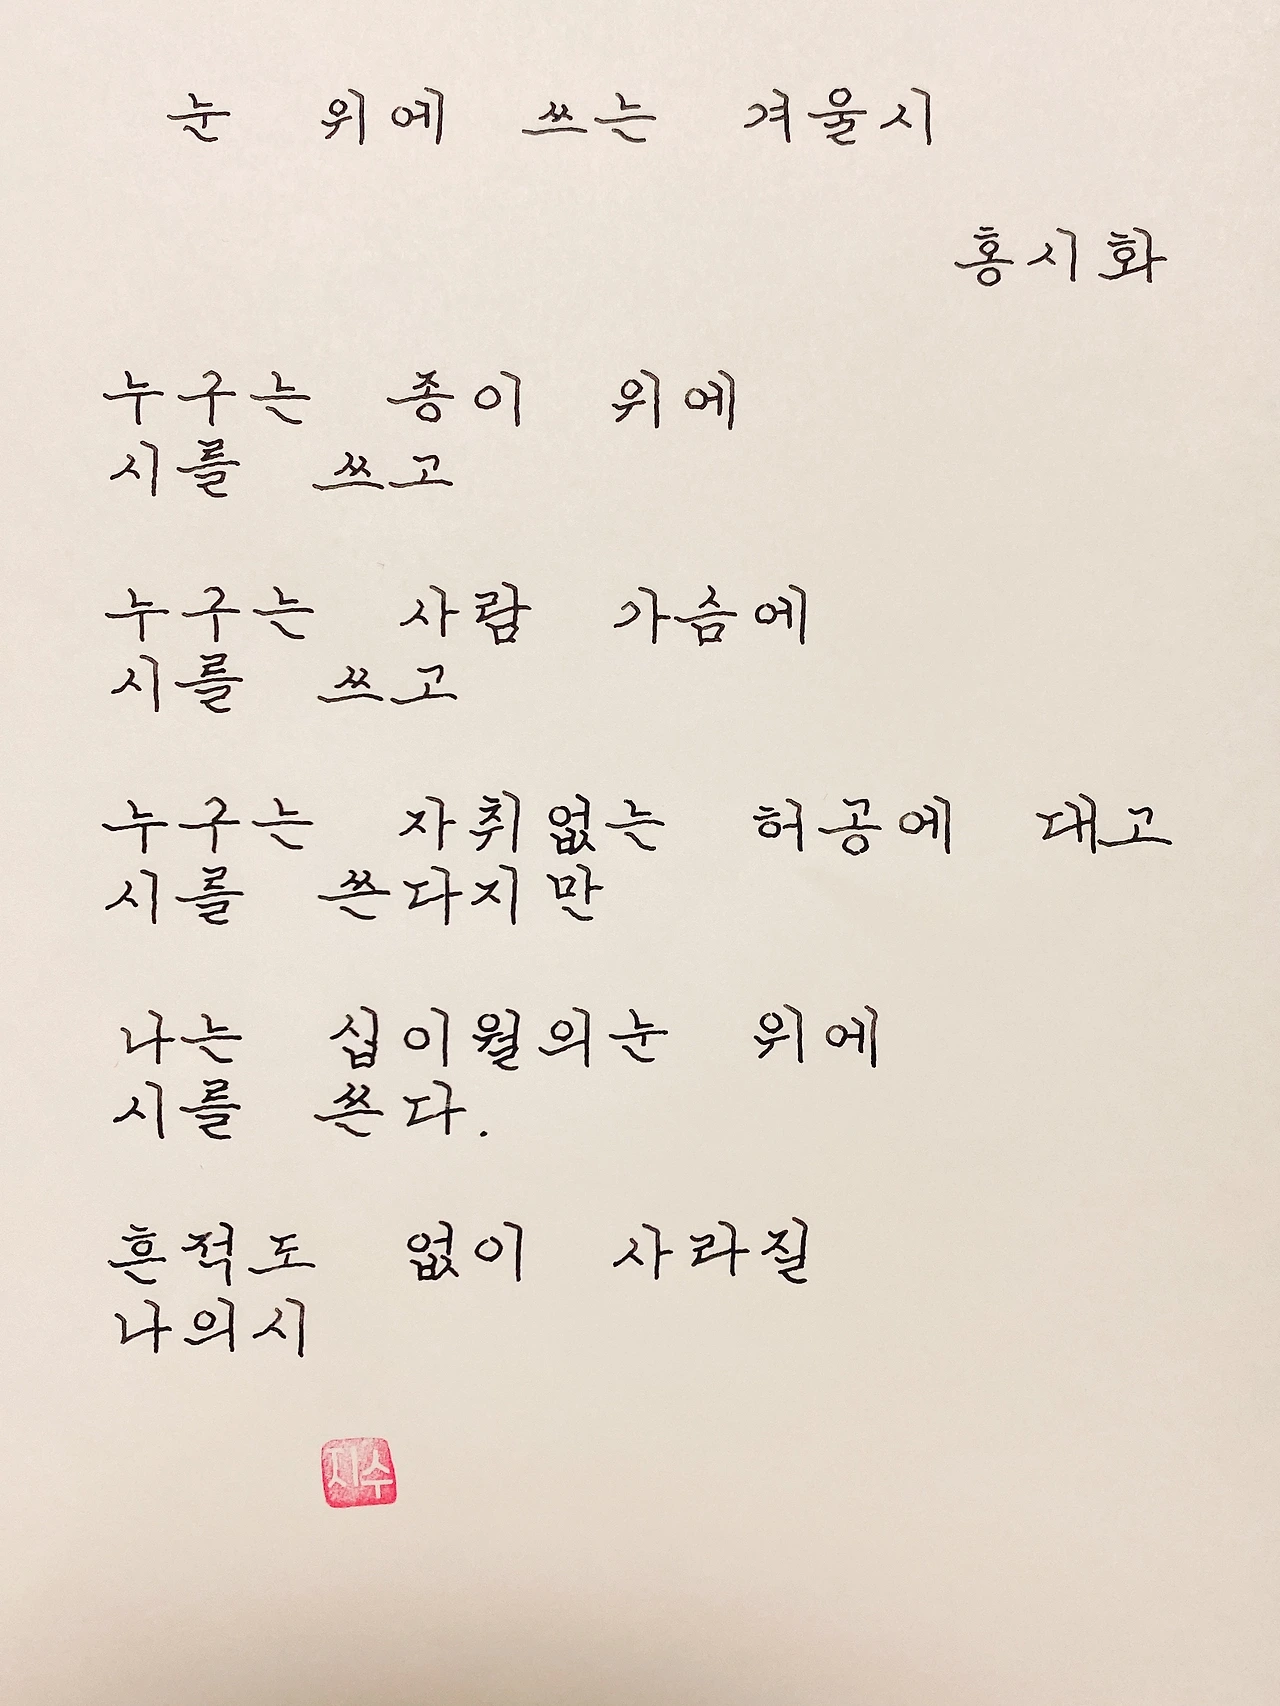 눈 위에 쓰는 겨울시
홍시화
누구는 종이 위에
시를 쓰고
누구는 사람 가슴에
시를 쓰고
누구는 자취없는 허공에 대고
시를 쓴다지만
나는 십이월의눈 위에
시를 쓴다.
흔적도 없이 사라질
나의시
지수